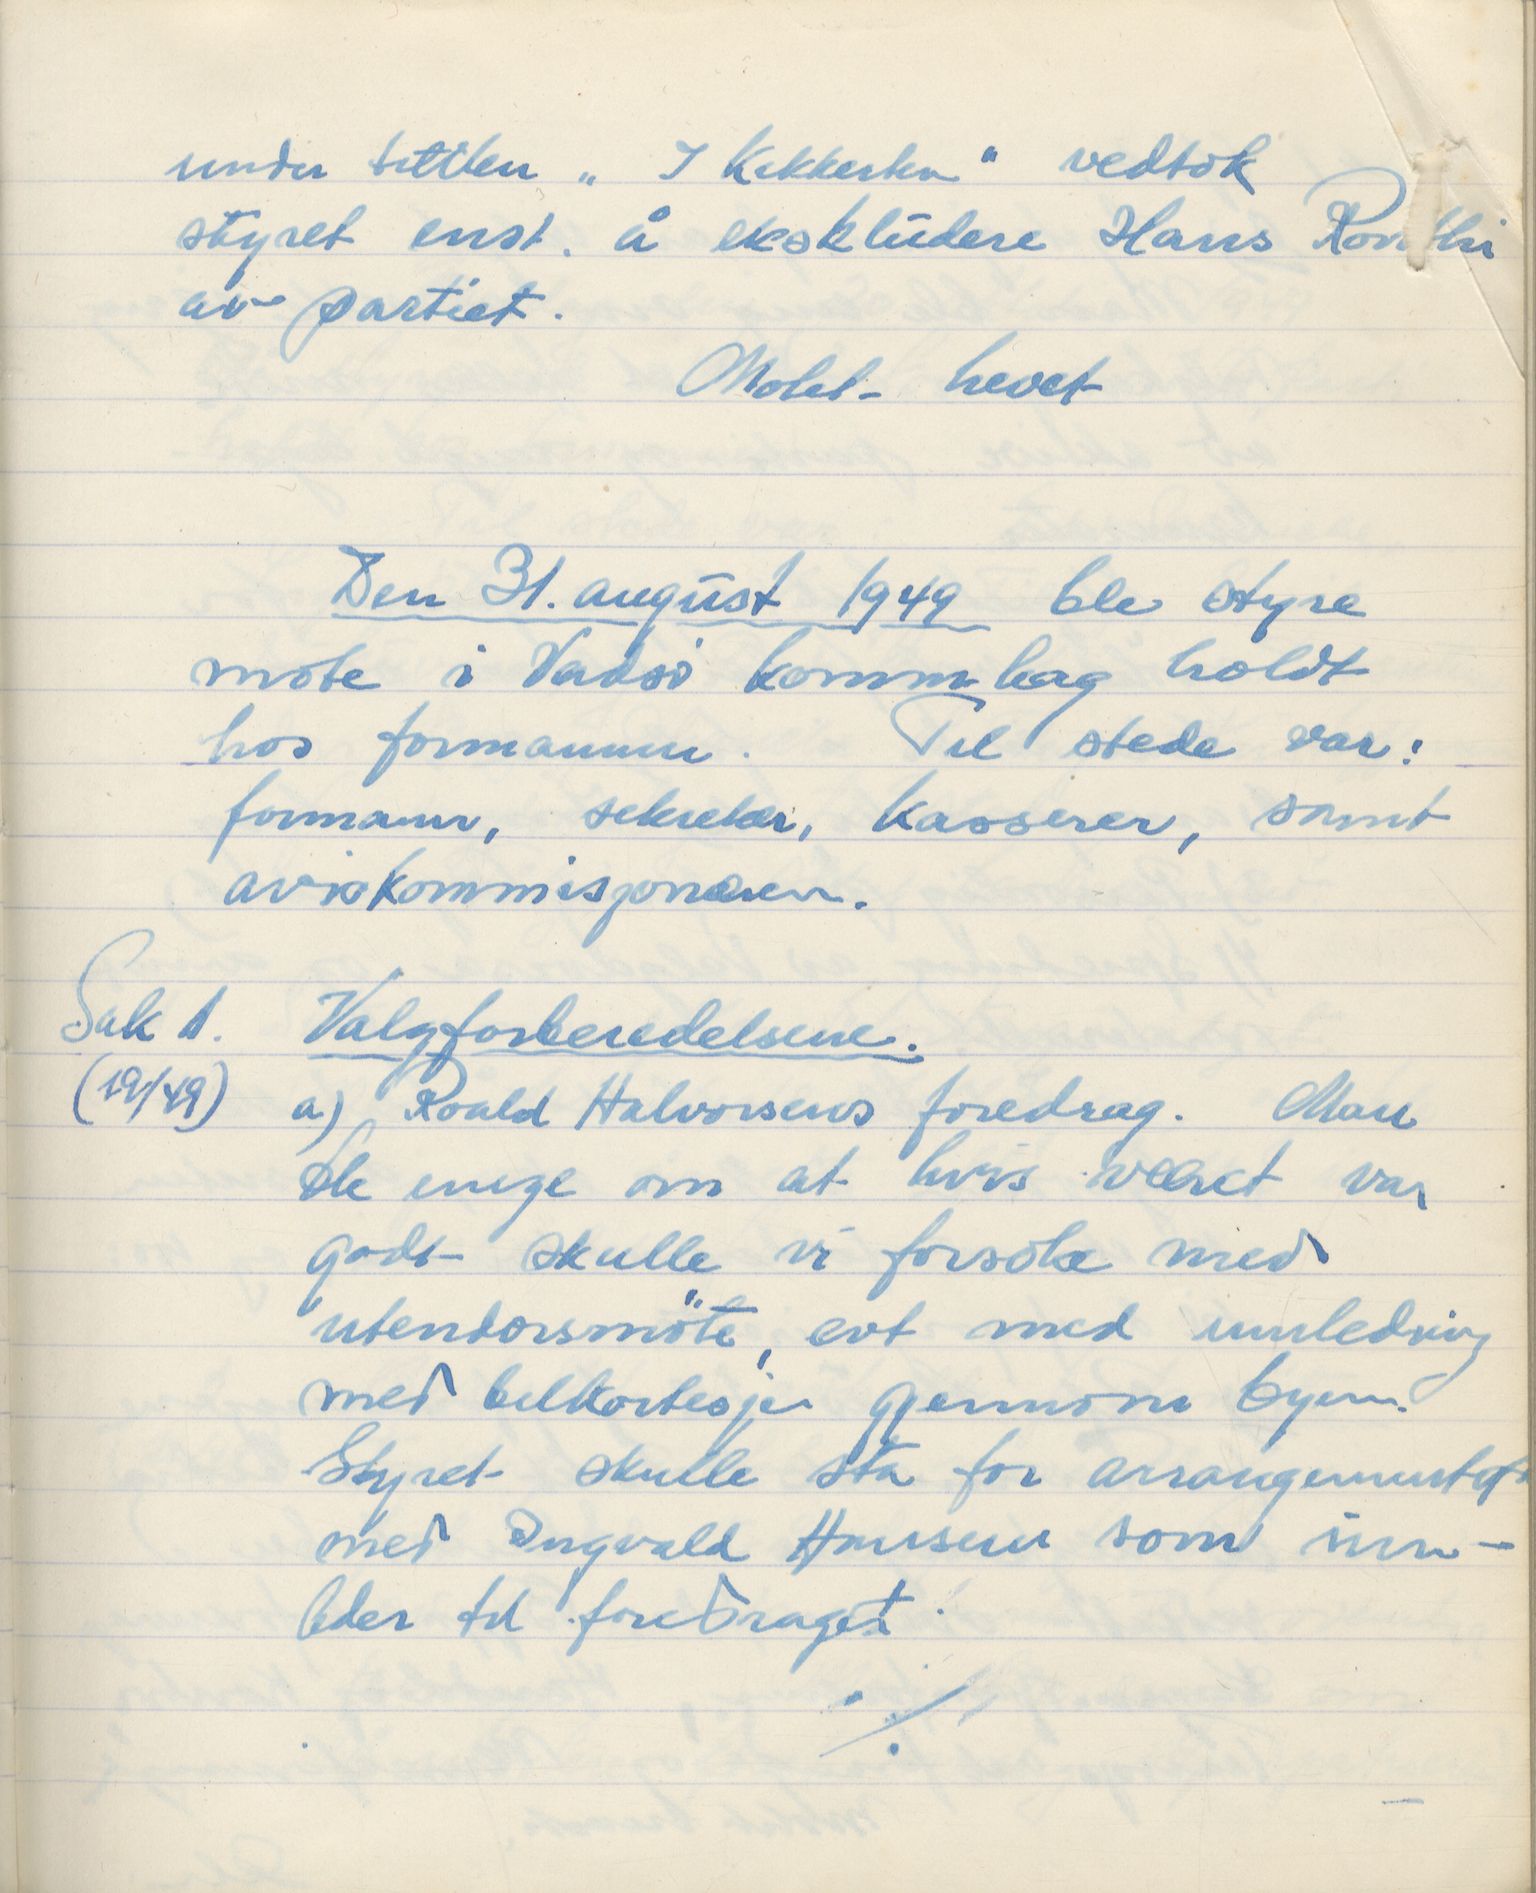 under tittelen „ I Kikkerten " vedtok
styret enst. å ekskludere Hans
av partiet.
Møtet hevet
Den 31. august 1949 ble styre
møte i Vadsø komm.lag holdt
hos formannen. Til stede var:
formann, sekretær, kasserer, samt
aviskommisjonæren.
Sak 1. Valgforberedelsene.
(19/49) a) Roald Halvorsens foredrag. Man
ble enige om at hvis været var
godt skulle vi forsøke med
utendørsmøte, evt med innledning
med bilkortesje gjennom byen.
Styret skulle stå for arrangementet
med Ingvald Hansen som inn-
leder til foredraget.
./.